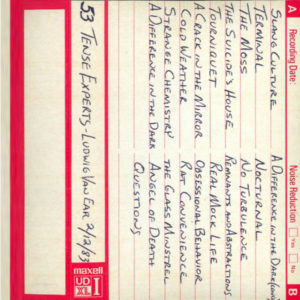 A
Recording Date:
SLANG CULTURE
TERMINAL
THE MOSS
THE SUICIDE'S HOUSE
TOURNIQUET
A CRACK IN THE MIRROR
COLD WEATHER
STRANGE CHEMISTRY
A DIFFERENCE IN THE DARK
B
Noise Reduction
Yes
No
A DIFFERENCE IN THE DARK
NOCTURNAL
NO TURBULENCE
REMNANTS AND ABSTRACTIONS
REAL MOCK LIFE
OBSESSIONAL BEHAVIOR
RAT CONVENIENCE
THE GLASS MINSTREL
ANGEL OF DEATH
QUESTIONS
53 TENSE EXPERTS - LUDWIG VAN EAR 2/12/83
maxell
UD
XL I